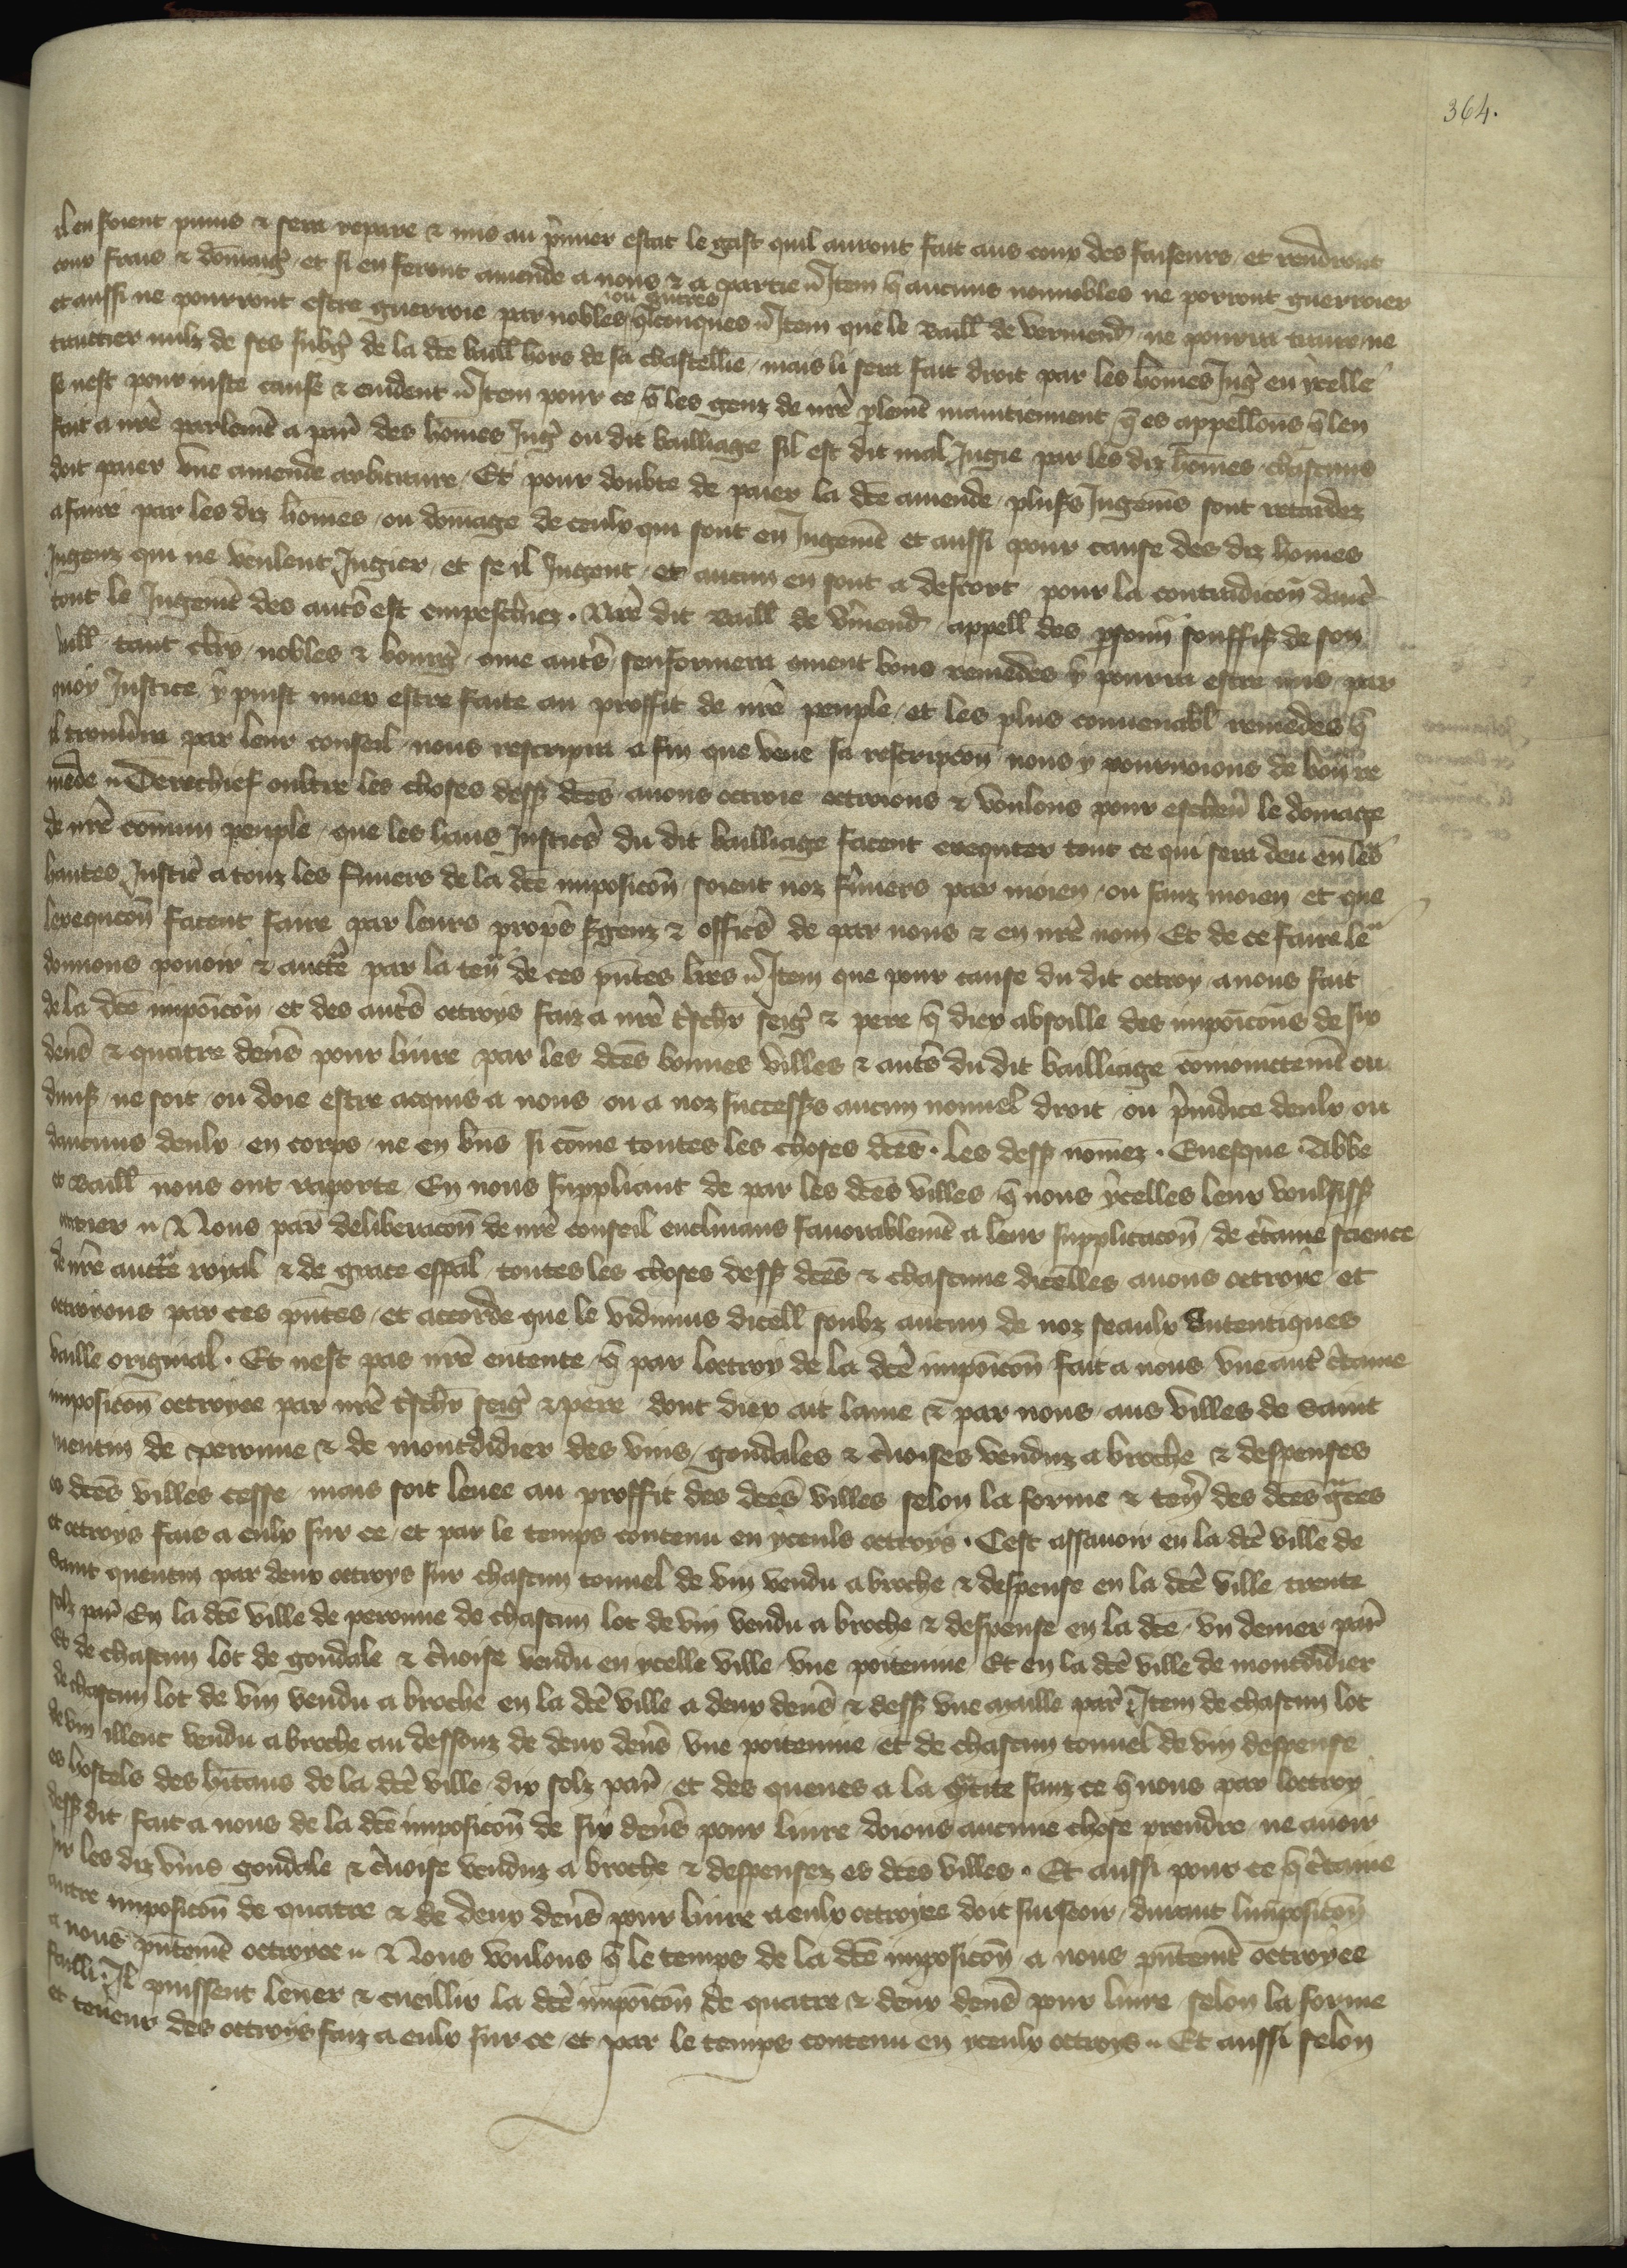 364.
il en soient punis & sera repare & mis au p̃mier estat le gast quil auront fait aus couz des faiseurs / et rendront
couz fraiz & dom̃aig̃ / et si en feront amende a nous & a partie // Item q̃ aucuns nonnobles ne porront guerroier
et aussi ne pourront estre guerroie par nobles ou autres q̃lconques // Item que le Baill̃ de vermend̃ ne pourra traire / ne
traictier nulz de ses subg̃ de la dc̃e baill̃ hors de sa chastellie / mais li sera fait droit par les hom̃es Jug̃ en ycelle
se nest pour iuste cause & euident // Item pour ce q̃ les genz de nr̃e p̃lemẽt maintiennent q̃ es appellons q̃ len
fait a nr̃e parlemẽt a par̃ des hom̃es Jug̃ ou dit bailliage sil est dit mal Jugie par les diz hom̃es / chascuns
doit paier vne amende arbitraire / Et pour doubte de paier la dc̃e amende / plus̃s Jugem̃s sont retardez
a faire par les diz hom̃es / ou domage de ceulx qui sont en Jugemẽt et aussi pour cause des diz hom̃es
Jugenz qui ne veulent Jugier / et se il Jugent / et aucun en sont a descort / pour la contradic̃on dauc̃
tout le Jugemẽt des aut̃s est empeschiez . Nr̃e dit Baill̃ de v̂mend̃ appell̃ des p̃sonñ souffis̃ de son
baill̃ tant cl̃rs / nobles & bourg̃ / cõme aut̃s / senformera cõment bons remedes y pourra estre mis / par
quoy Justice y puist miex estre faite au proffit de nr̃e peuple / et les plus conuenabl̃ remedes q̃
il trouuera par leur conseil / nous rescripra a fin que veue sa rescripc̃on nous y pouruoions de bon re
mede // Derechief oultre les choses dess̃ dc̃es auons octroie octroions & voulons pour escheu̾ le domage
de nr̃e cõmun peuple / que les haus Justic̃s du dit bailliage facent executer tout ce qui sera deu en les
hautes Justic̃ a touz les fermiers de la dc̃e imposic̃on / soient noz fermiers par moien / ou sanz moien et que
lexequc̃on facent faire par leurs propes s̃genz & offic̃s de par nous & en nr̃e nom / Et de ce faire leᵘ
donnons pouoir & auct̃e par la teñ de ces pñtes l̃res // Item que pour cause du dit octroy a nous fait
de la dc̃e impoĩcon / et des aut̃s octroys faiz a nr̃e t̃sch̃r seig̃ & pere q̃ diex absoille des impoĩcons de six
deñs & quatre deñs pour liure par les dc̃es bonnes villes & aut̃s du dit bailliage conioinctemẽt ou
diuis̃ / ne soit / ou doie estre acquis a nous / ou a noz success̃s aucun nouuel droit / ou p̃iudice deulx / ou
daucuns deulx / en corps / ne en bñs / si cõme toutes les choses dc̃es . les dess̃ nom̃ez . Euesque . Abbe
et Baill̃ nous ont raporte / En nous suppliant de par les dc̃es villes / q̃ nous ycelles leur voulsiss̃
octroier // Nous par deliberac̃on de nr̃e conseil enclinans fauorablemẽt a leur supplicac̃on / de c̃taine science
de nr̃e auct̃e royal & de grace esp̃al / toutes les choses dess̃ dc̃es & chascune dicelles auons octroye / et
octroyons par ces pñtes / et accorde que le vidimus dicell̃ soubz aucun de noz seaulx Autentiques
vaille original . Et nest pas nr̃e entente / q̃ par loctroy de la dc̃e impoĩcon fait a nous vne aut̃ c̃taine
imposic̃on octroyee par nr̃e t̃sch̃r seig̃ & pere / dont diex ait lame & par nous / aus villes de Saint
quentin de peronne & de montdidier des vins / goudales & c̃uoises venduz a broche & despenses
es dc̃es villes cesse / mais soit leuee au proffit des dc̃es villes selon la forme & teñ des dc̃es g̃ces
et octroys fais a eulx sur ce / et par le temps contenu en yceuls octroys . Cest assauoir en la dc̃e ville de
Saint quentin par deux octroys sur chascun tonnel de vin vendu a broche & despense en la dc̃e ville trente
solz par̃ En la dc̃e ville de peronne de chascun lot de vin vendu a broche & despense en la dc̃e / vn denier par̃
Et de chascun lot de goudale & c̃uoise vendu en ycelle ville / vne poiteuine Et en la dc̃e ville de montdidier
de chascun lot de vin vendu a broche en la dc̃e ville a deux deñs & dess̃ vne maille par̃ Item de chascun lot
de vin illenc vendu a broche au dessouz de deux deñs / vne poiteuine / et de chascun tonnel de vin despense
es hostels des hãitans de la dc̃e ville / dix solz par̃ / et des queues a la q̃tite / sanz ce q̃ nous par loctroy
dess̃ dit fait a nous de la dc̃e imposic̃on de six deñs pour liure doions aucune chose prendre / ne auoir
sur les diz vins goudale & c̃uoise venduz a broche & despensez es dc̃es villes . Et aussi pour ce q̃ c̃taine
autre imposic̃on de quatre & de deux deñs pour liure a eulx octroyee doit surseoir / durant limposic̃on
a nous pñtemẽt octroyee // Nous voulons q̃ le temps de la dc̃e imposic̃on a nous pñtemẽt octroyee
failli . Il puissent leuer & cueillir la dc̃e impoĩcon de quatre & deux deñs pour liure / selon la forme
et teneur des octroys faiz a eulx sur ce / et par le temps contenu en yceulx octroys // Et aussi selon